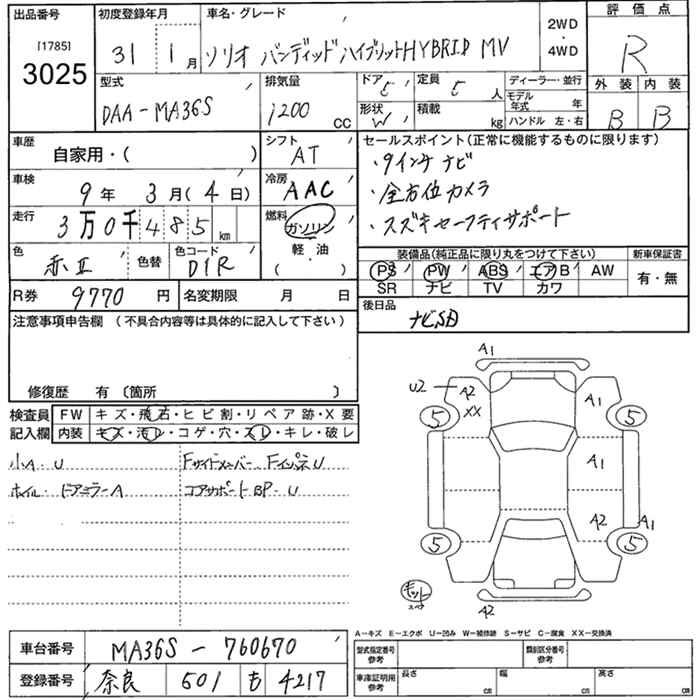 出品番号
[1785]
3025
初度登録年月
31 1月
車名・グレード
ソリオ バンディッドハイブリットHYBRID MV
2WD
・
4WD
評価点
R
外装 内装
B B
型式
DAA-MA36S
排気量
1200 cc
ドア 5
定員 5 人
形状 W
積載 kg
ディーラー・並行
モデル年式 年
ハンドル 左・右
車歴
自家用・( )
シフト
AT
車検
9年 3月(4日)
冷房
AAC
走行
3万0千485 km
燃料
ガソリン
軽・油
( )
色
赤II
色替
色コード
D1R
R券 9770円
名変期限 月 日
セールスポイント(正常に機能するものに限ります)
・9インチナビ
・全方位カメラ
・スズキセーフティサポート
装備品(純正品に限り丸をつけて下さい)
PS PW ABS エアB AW
SR ナビ TV カワ
新車保証書
有・無
後日品
ナビSD
注意事項申告欄(不具合内容等は具体的に記入して下さい)
修復歴 有〔箇所 〕
検査員記入欄
FW キズ・飛石・ヒビ割・リペア跡・X要
内装 キズ・汚レ・コゲ・穴・スレ・キレ・破レ
小A・U
ホイル・ドアミラーA
Fサイドメンバー FインパネU
コアサポートBP・U
A1
U2 A2 XX
A1
5 5
A1
A2 A1
5 5
キット
A2
A-キズ E-エクボ U-凹み W-補修跡 S-サビ C-腐食 XX-交換済
車台番号 MA36S-760670
登録番号 奈良 501 も 4217
型式指定番号 参考
類別区分番号 参考
車庫証明用 参考
長さ cm
幅 cm
高さ cm